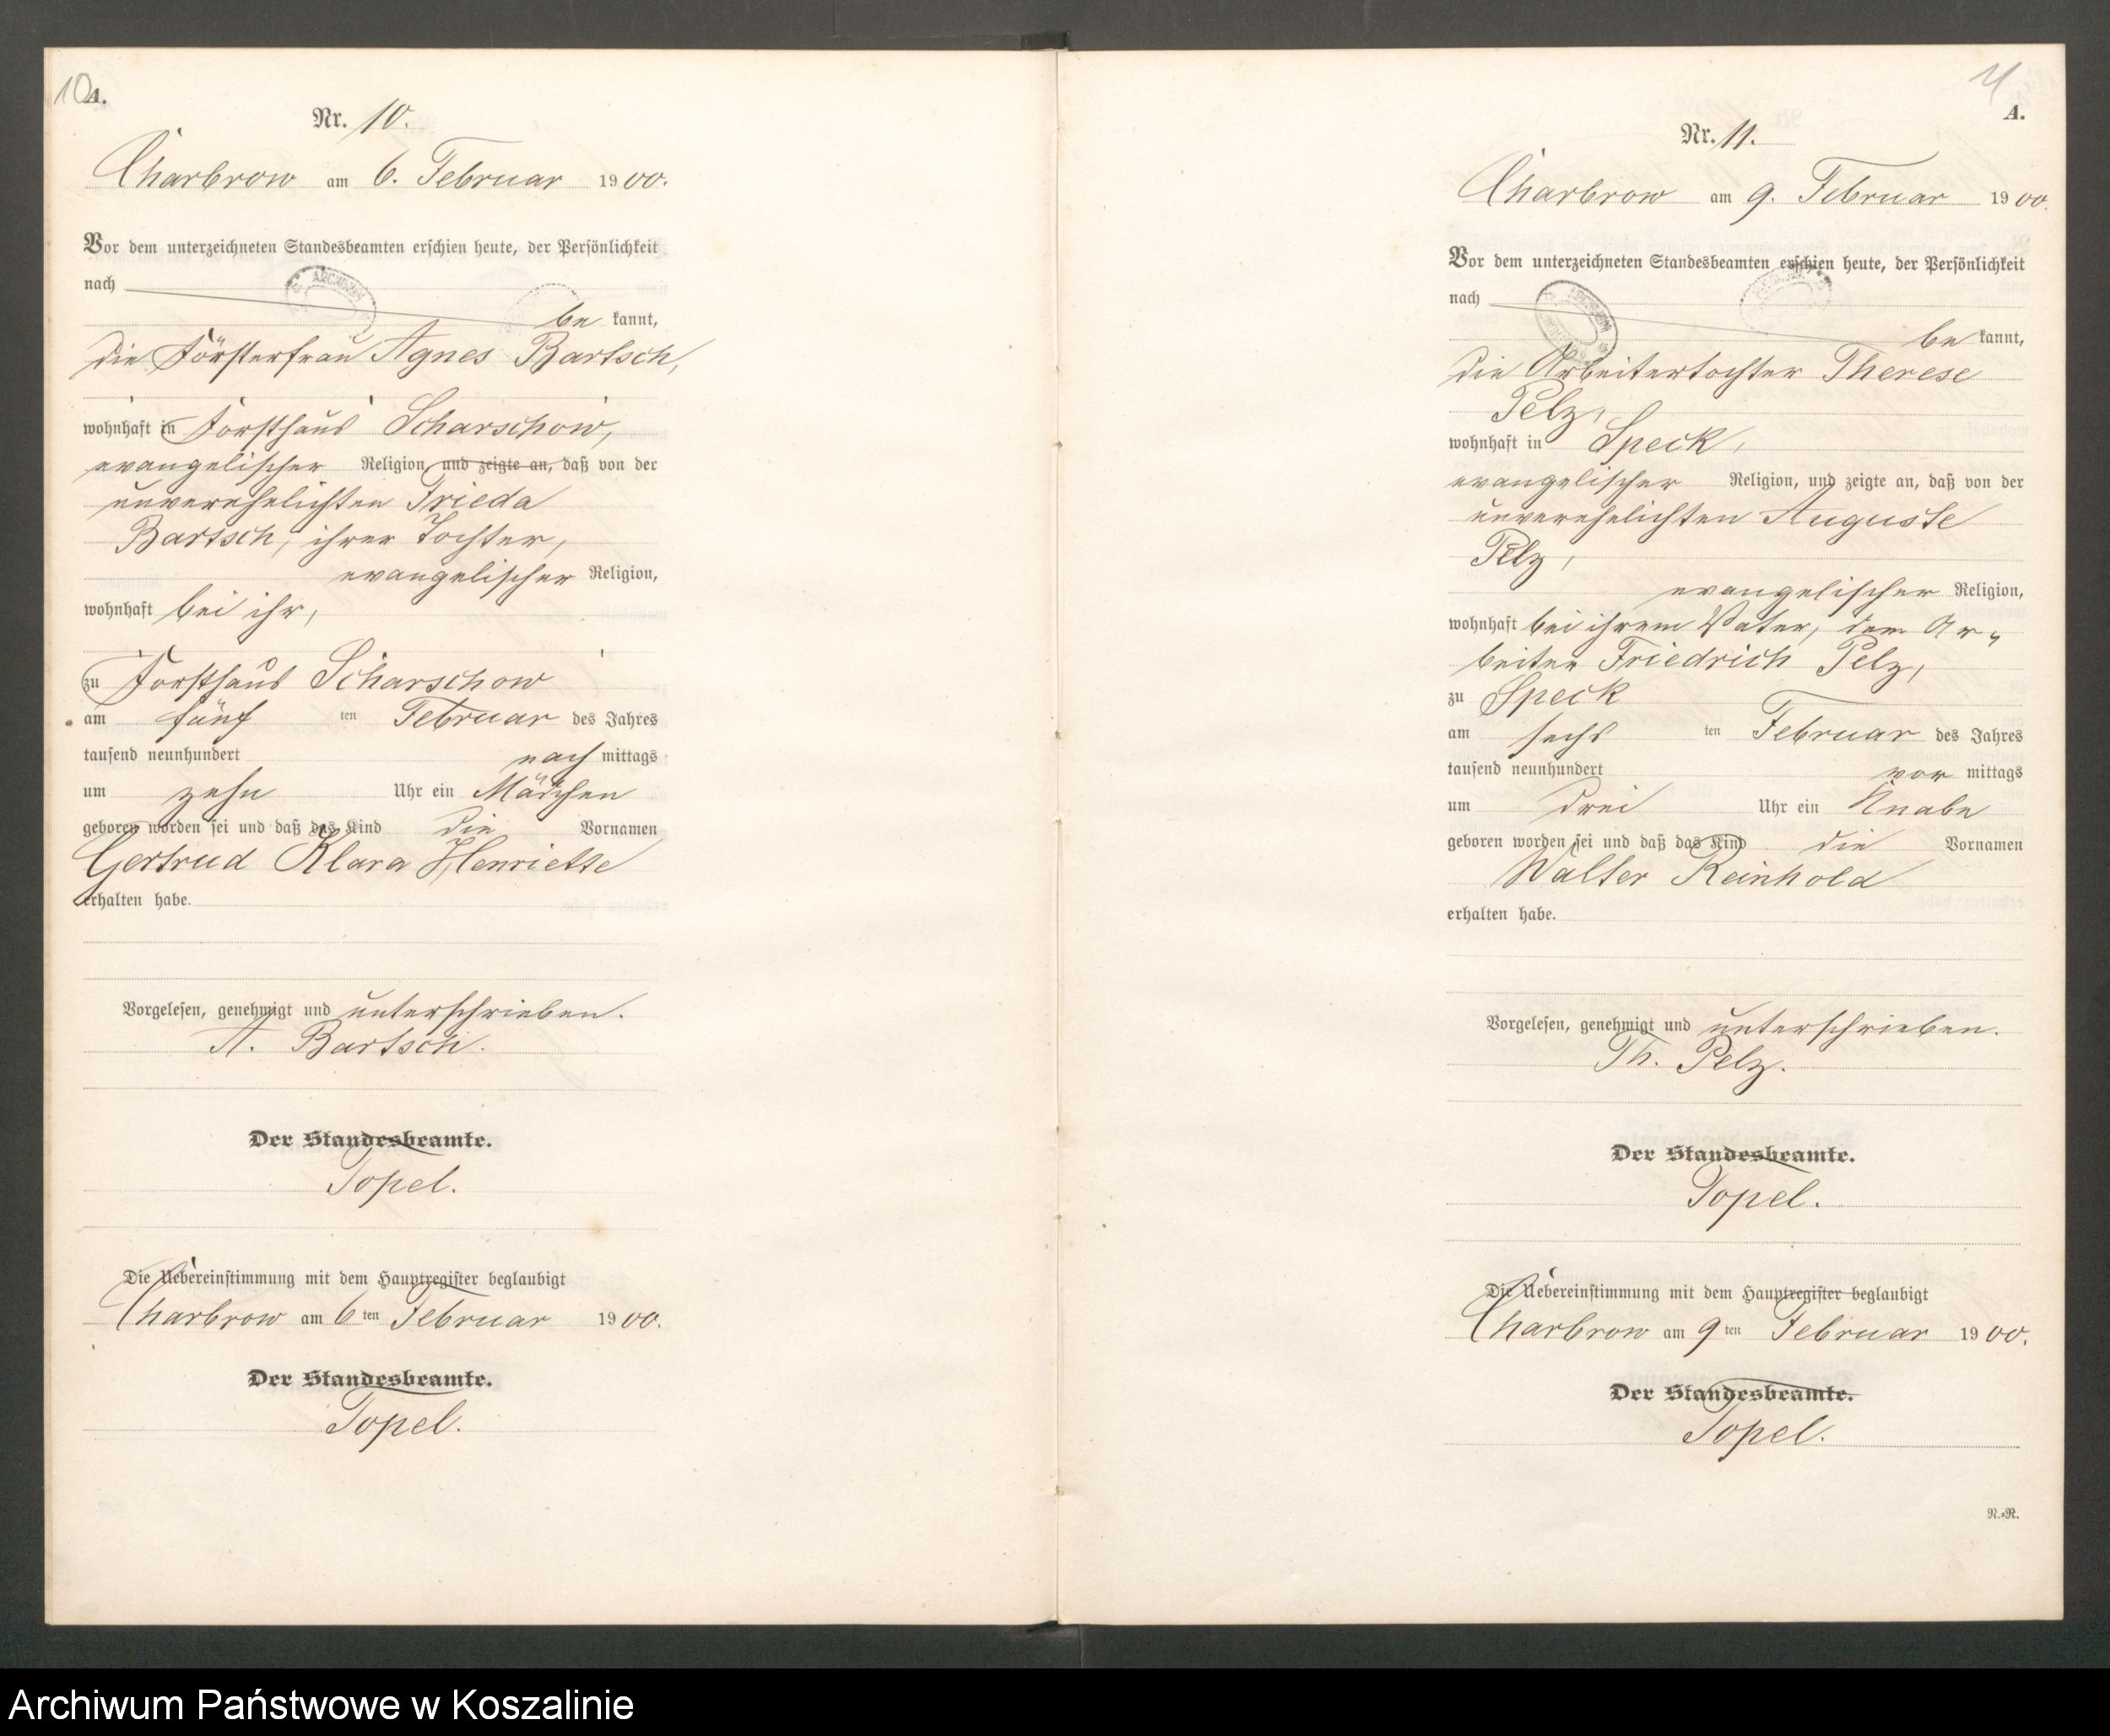 10 A.
Nr. 10.
Charbrow am 6. Februar 1900.
Vor dem unterzeichneten Standesbeamten erschien heute, der Persönlichkeit
nach
be kannt,
die Försterfrau Agnes Bartsch,
wohnhaft in Forsthaus Scharschow,
evangelischer Religion und zeigte an, daß von der
unverehelichten Frieda
Bartsch, ihrer Tochter,
evangelischer Religion,
wohnhaft bei ihr,
zu Forsthaus Scharschow
am fünf ten Februar des Jahres
tausend neunhundert nach mittags
um zehn Uhr ein Mädchen
geboren worden sei und daß das Kind die Vornamen
Gertrud Klara Henriette
erhalten habe.
Vorgelesen, genehmigt und unterschrieben.
A. Bartsch.
Der Standesbeamte.
Topel.
Die Uebereinstimmung mit dem Hauptregister beglaubigt
Charbrow am 6 ten Februar 1900.
Der Standesbeamte.
Topel.
11
A.
Nr. 11.
Charbrow am 9. Februar 1900.
Vor dem unterzeichneten Standesbeamten erschien heute, der Persönlichkeit
nach
be kannt,
die Arbeitertochter Therese
Pelz,
wohnhaft in Speck,
evangelischer Religion, und zeigte an, daß von der
unverehelichten Auguste
Pelz,
evangelischer Religion,
wohnhaft bei ihrem Vater, dem Ar-
beiter Friedrich Pelz,
zu Speck
am sechs ten Februar des Jahres
tausend neunhundert vor mittags
um drei Uhr ein Knabe
geboren worden sei und daß das Kind die Vornamen
Walter Reinhold
erhalten habe.
Vorgelesen, genehmigt und unterschrieben.
Th. Pelz.
Der Standesbeamte.
Topel.
Die Uebereinstimmung mit dem Hauptregister beglaubigt
Charbrow am 9 ten Februar 1900.
Der Standesbeamte.
Topel.
N.=R.
Archiwum Państwowe w Koszalinie